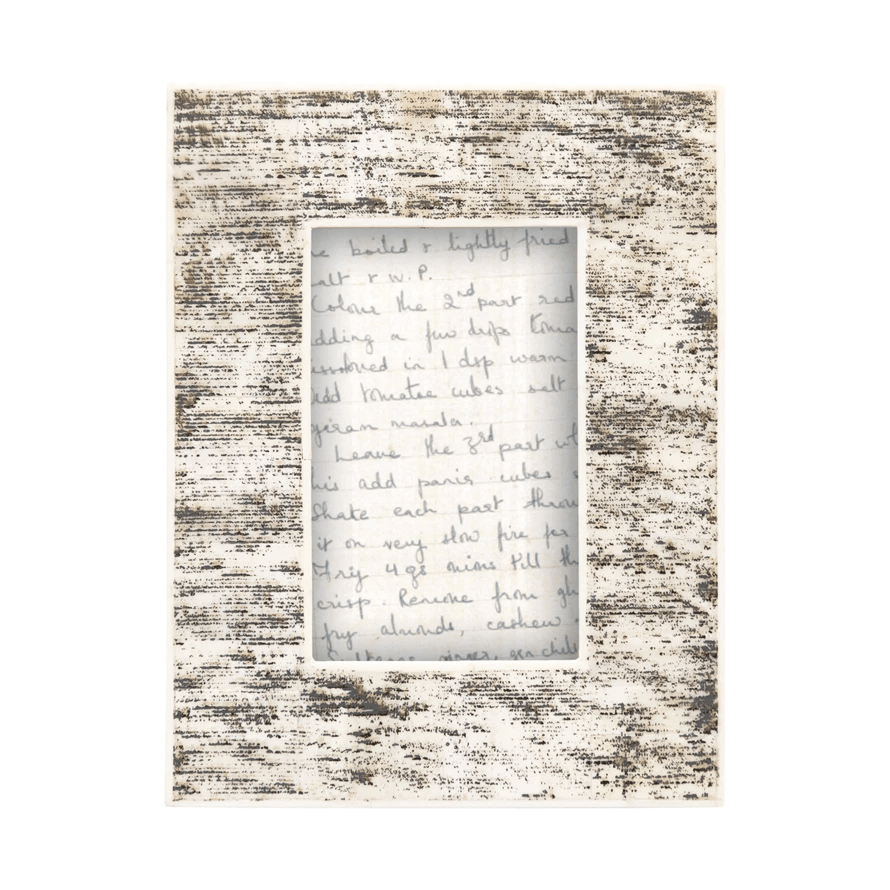 e boiled & lightly fried
alt & W.P.
Colour the 2nd part red
dding a few drps toma
issolved in 1 dsp warm
Add tomatoe cubes salt
garam masala.
Leave the 3rd part wh
his add panir cubes s
Shake each part throu
it on very slow fire for
Fry 4 ge mins till th
crisp. Remove from gh
fry almonds, cashew
ginger, gen chil